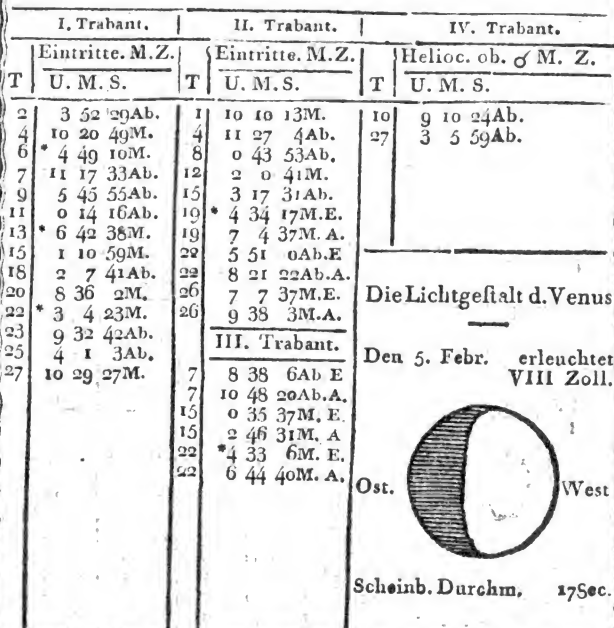 I. Trabant.
Eintritte. M.Z.
T U. M. S.
2 3 52 29Ab.
4 10 20 49M.
6 * 4 49 10M.
7 11 17 33Ab.
9 5 45 55Ab.
11 0 14 16Ab.
13 * 6 42 38M.
15 1 10 59M.
18 2 7 41Ab.
20 8 36 2M.
22 * 3 4 23M.
23 9 32 42Ab.
25 4 1 3Ab.
27 10 29 27M.
II. Trabant.
Eintritte. M.Z.
T U. M. S.
1 10 10 13M.
4 11 27 4Ab.
8 0 43 53Ab.
12 2 0 41M.
15 3 17 31Ab.
19 * 4 34 17M.E.
19 7 4 37M.A.
22 5 51 0Ab.E
22 8 21 22Ab.A.
26 7 7 37M.E.
26 9 38 3M.A.
III. Trabant.
7 8 38 6Ab E
7 10 48 20Ab.A.
15 0 35 37M. E.
15 2 46 31M. A
22 *4 33 6M. E.
22 6 44 40M. A.
IV. Trabant.
Helioc. ob. ☌ M. Z.
T U. M. S.
10 9 10 24Ab.
27 3 5 59Ab.
Die Lichtgeſtalt d. Venus
Den 5. Febr. erleuchtet
VIII Zoll.
Ost. West
Scheinb. Durchm. 17Sec.